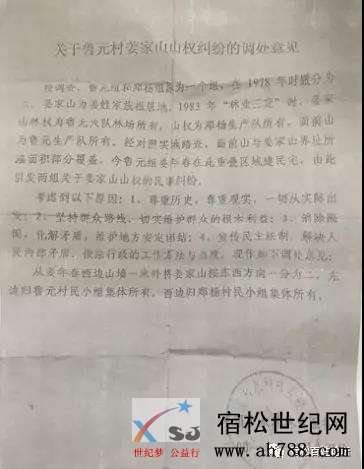 关于鲁元村姜家山山权纠纷的调处意见
经调查，鲁元组和邓杨组原为一个组，在1978年时嬔分为
二，姜家山为姜姓家族祖居地，1983年“林业三定”时，姜家
山林权为鲁元大队林场所有，山权为邓杨生产队所有，面前山
为鲁元生产队所有。经对照实城踏查，面前山与姜家山界址所
准面积部分覆盖，今鲁元组姜年春在此重叠区域建民宅，由此
引发两组关于姜家山山权的民事纠纷。
考虑到以下原因：1、尊重历史，尊重现实，一切从实际出
发；2、坚持群众路线，切实维护群众的根本利益；3、消除隔
阂，化解矛盾，维护地方安定团结；4、宣传民主法制，解决人
民内部矛盾，依法行政的工作方法与态度，现作如下调处意见：
从姜年春西边山墙一米外将姜家山按东西方向一分为二，东
边归鲁元村民小组集体所有，西边归邓杨村民小组集体所有。
XSJ
世纪梦 公益行
宿松世纪网
www.ah788.com